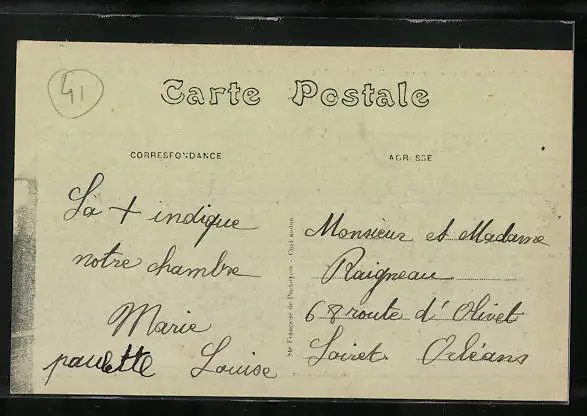 41
Carte Postale
CORRESPONDANCE
ADRESSE
La + indique
notre chambre
Marie
paulette Louise
Monsieur et Madame
Raigneau
68 route d'Olivet
Loiret. Orléans
Sté Française de Phototypie - Chat audun